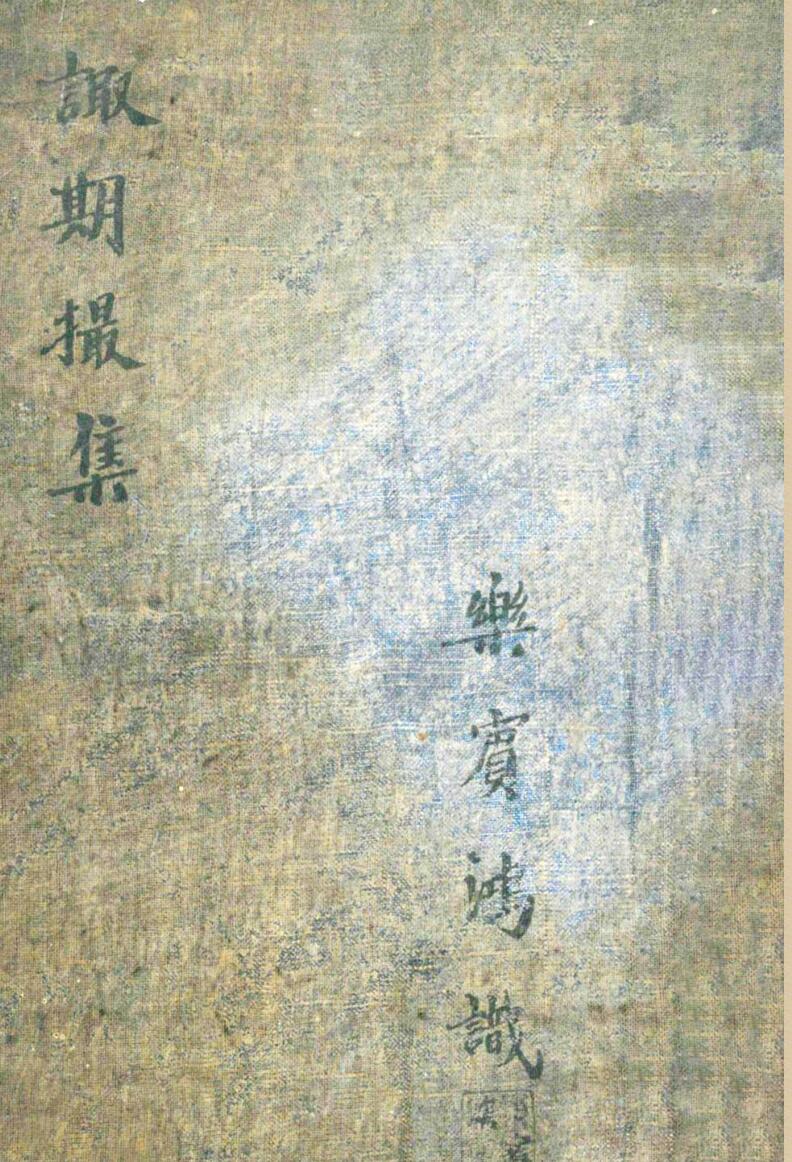 諏期撮集
樂賓鴻識